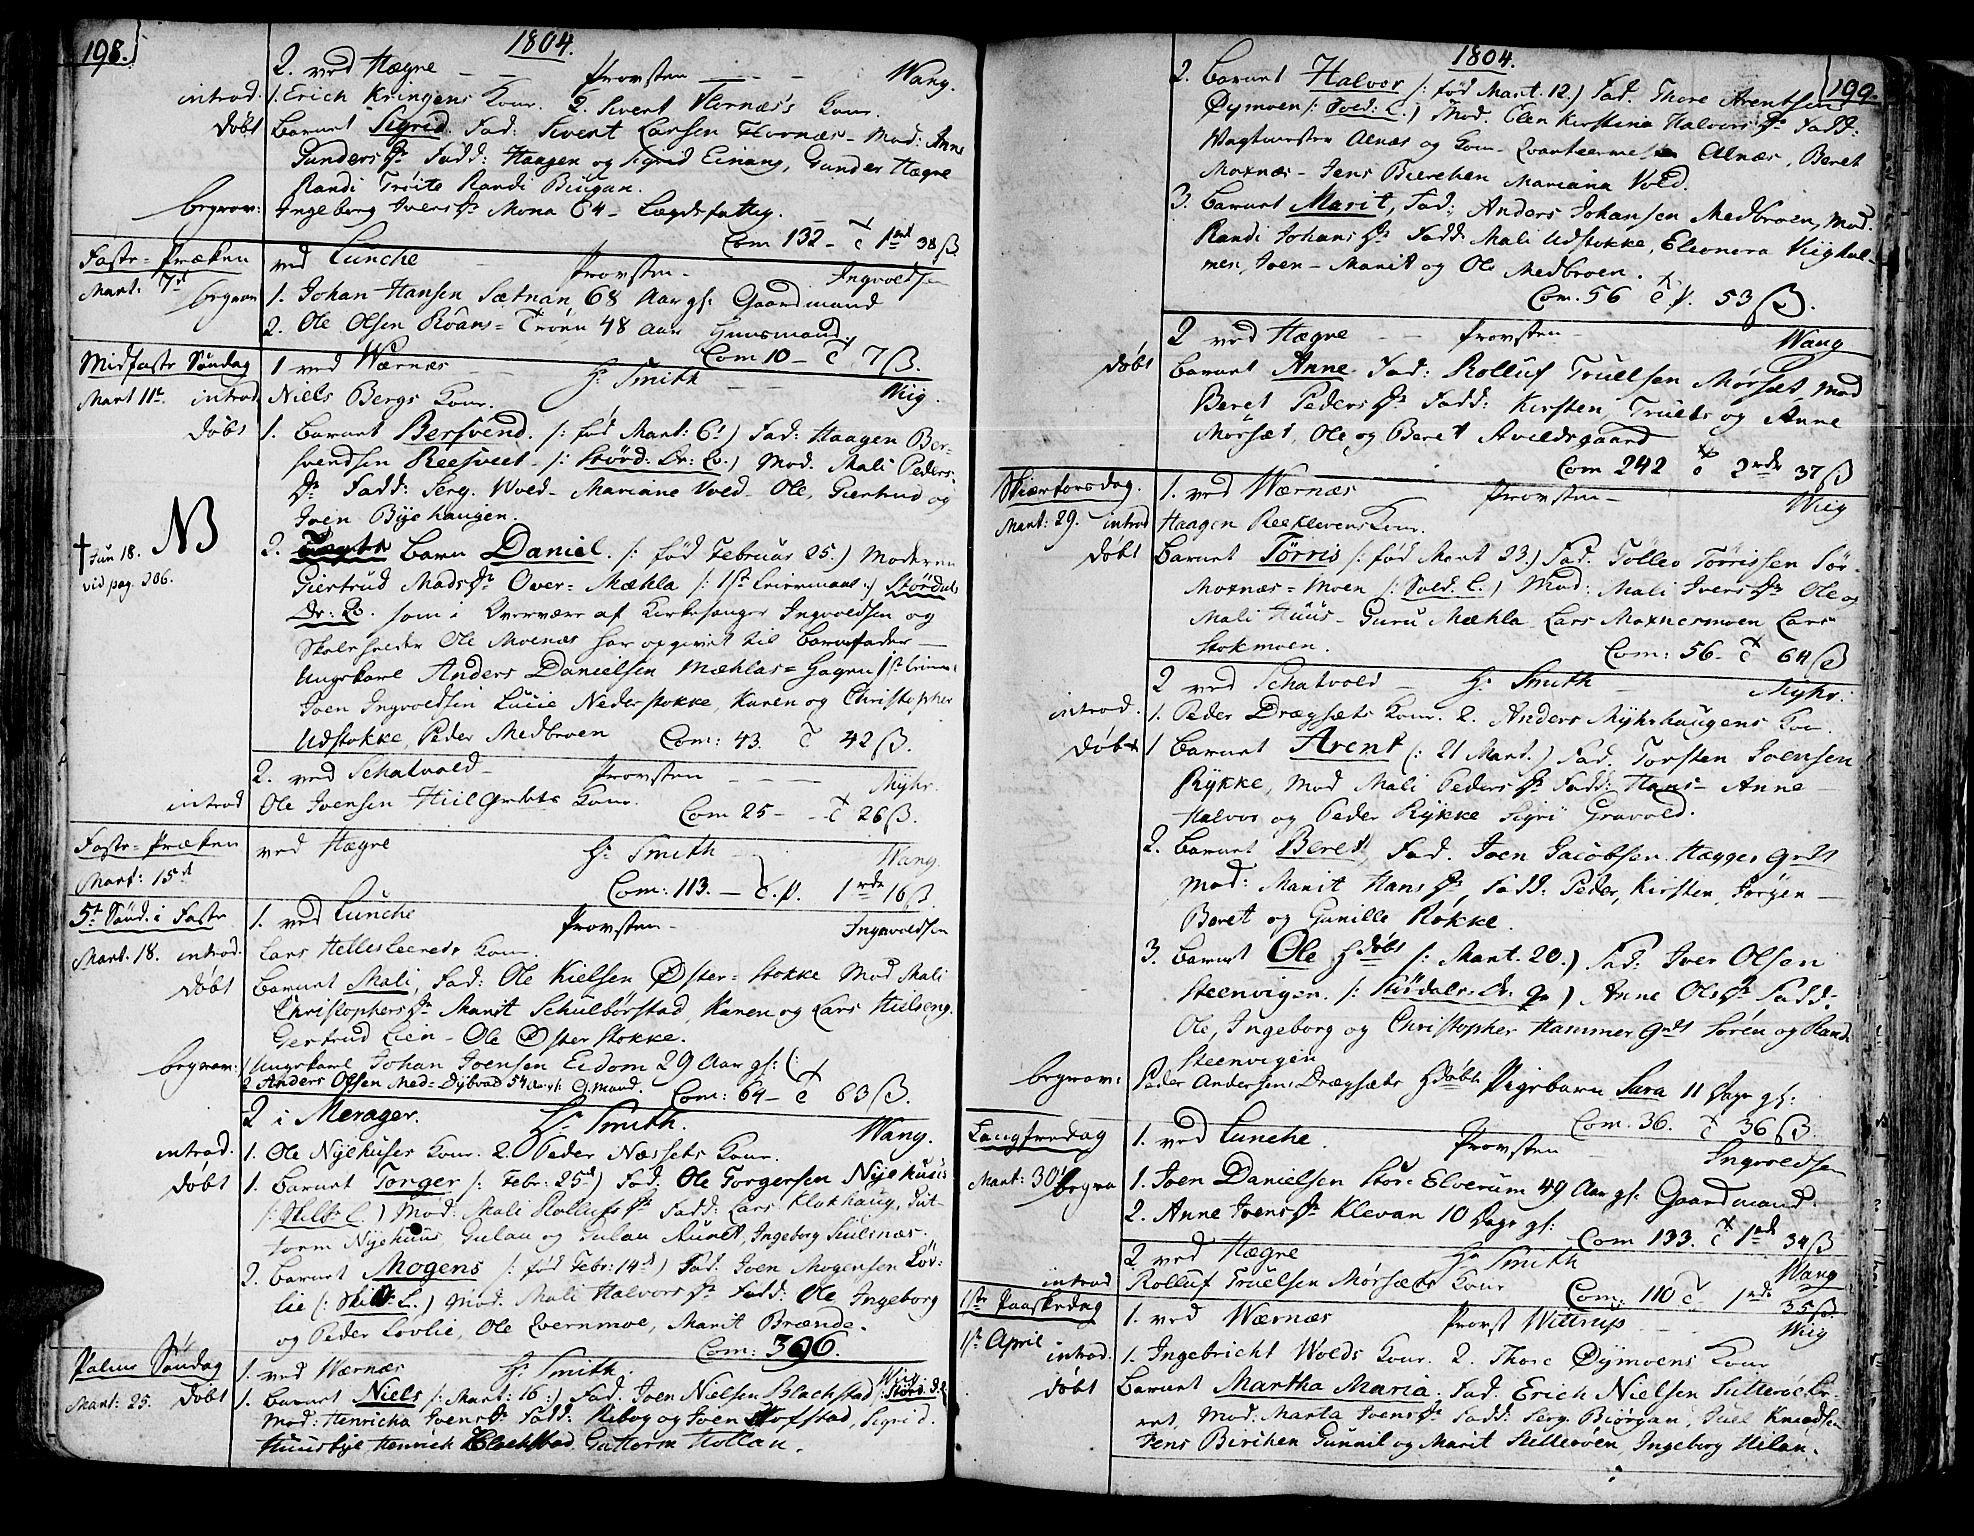 198.
1804.
2. ved Hægne - - Provsten - - - Wang.
introd. 1. Erich Kringens Kone. 2. Sivert Flornæs's Kone.
døbt Barnet Sigrid. Fad: Sivert Larsen Flornæs - Mod: Anne
Gunders Dr Fadd: Haagen og Sigrid Einang, Gunder Hægne
Randi Trøite Randi Biugan.
begrav: Ingeborg Ivers Dr Mona 64 - Lægdsfattig.
Com 132 - 1 38 ß.
Faste-Præken ved Lunche - Provsten - Ingvoldsen
Mart: 7d begrav 1. Johan Hansen Sætnan 68 Aar gl: Gaardmand
2. Ole Olsen Roans-Trøen 48 Aar Huusmand.
Com 10 - 7 ß.
Midfaste Søndag 1 ved Wærnæs - Hr Smith - - Wiig.
Mart 11te introd Niels Bergs Kone.
døbt 1. Barnet Bersvend. /: fød Mart: 6t) Fad: Haagen Ber-
svendsen Reesveet - /: Størd: Dr: Co.) Mod. Mali Peders-
Dr Fadd: Serg. Wold - Mariane Vold - Ole, Giertrud og
Joen Byehaugen.
NB
† Jun 18.
vid pag. 206.
2. Barn Daniel. /: fød Februar 25.) Moderen
Giertrud Mads Dr Over-Mæhla /: 1ste Leiermaal:) Størdals
Dr: Co. som i Overvære af Kirkesanger Ingvoldsen og
Skoleholder Ole Moenæs har opgivet til Barnefader -
Ungkarl Anders Danielsen Mæhlas-Hagen
Joen Ingvoldsen Lucie Nederstokke, Karen og Christopher
Udstokke, Peder Medbroen Com: 43. 42 ß.
2. ved Schatvold - Provsten - - - Myhr.
introd Ole Joensen Kone.
Com 25 - - 26 ß.
Faste-Præken ved Hægne Hr Smith - Wang.
Mart: 15d Com: 113. - 1 16 ß.
5te Sønd. i Faste 1. ved Lunche Provsten - Ingvoldsen
Mart: 18. introd. Lars Kone.
døbt Barnet Mali, Fad: Ole Kielsen Øster-Stokke Mod Mali
Christophers Dr Marit Schulbørstad, Karen og Lars Hielseng.
Gertrud Lien - Ole Østerstokke.
begrav: 1 Ungkarl Johan Joensen Eidom 29 Aar gl:
2 Anders Olsen Med-Dybvad 54 Aar gl: G.mand. Com: 64 - 63 ß.
2 i Merager. Hr Smith. Wang.
introd. 1. Ole Nyehuses Kone. 2. Peder Næssets Kone.
døbt 1. Barnet Torger /: Febr: 25d) Fad. Ole Torgersen Nyehuus
Mod: Mali Rollufs Dr Fadd: Lars Klokhaug, Gut-
torm Nyehuus, Gulau og Gulau Auret, Ingeborg Siulsnæs.
2. Barnet Mogens /: fød Febr: 14d) Fad. Joen Mogensen Løv-
lie Mod. Mali Halvors Dr Fadd: Ole Ingeborg
og Peder Lovlie, Ole Qvernmoe, Marit Brænde.
Com: 396.
Palme Søndag 1. ved Wærnæs Hr Smith. Wiig
Mart: 25. døbt 1. Barnet Niels /: Mart: 16:) Fad. Joen Nielsen Blachstad
Mod: Henricha Ivers Dr Fadd: Ribog og Joen Hofstad, Sigrid
Huusbye Henrich Blachstad Guttorm Hollan.
1804.
199.
2. Barnet Halvor /: fød Mart. 12.) Fad. Thore Arentsen
Øymoen /: Sold. C.) Mod. Elen Kirstina Halvors Dr Fadd:
Vagtmester Alnæs og Qvarteermester Alnæs, Beret
Moxnæs - Jens Bierchen Mariana Vold.
3. Barnet Marit, Fad: Anders Johansen Medbroen, Mod.
Randi Johans Dr Fadd: Mali Udstokke, Eleonora
Joen - Marit og Ole Medbroen.
Com. 56 53 ß.
2 ved Hægne - - Provsten - Wang
døbt Barnet Anne. Fad: Rolluf Truelsen Mørset, Mod
Beret Peders Dr Fadd: Kirsten, Truels og Anne
Morsæt, Ole og Beret Aveldsgaard
Com 242 2 37 ß
Skiertorsdag. 1. ved Wærnæs Provsten - Wiig
Mart: 29. introd Haagen Reeklevens Kone.
døbt Barnet Tørris /: fød Mart 23.) Fad. Tollev Tørrissen Sør-
Moxnæs-Moen /: Sold. C.) Mod: Mali Ivers Dr Ole og
Mali Huus - Guru Mæhla Lars Moxnesmoen Lars
Stokmoen. Com: 56 - 64 ß
2 ved Schatvold - Hr Smith - Myhr:
introd. 1. Peder Drægsæts Kone. 2. Anders Myhrhaugens Kone.
døbt 1 Barnet Arent (: 21 Mart.) Fad. Torsten Joensen
Rykke, Mod Mali Peders Dr Fadd: Hans - Anne -
Halvor og Peder Rykke Sigri Gravold.
2. Barnet Beret, Fad. Joen Jacobsen
Mod: Marit Hans Dr, Fadd: Peder, Kirsten, Jørgen -
Beret og Gunille Røkke.
3. Barnet Ole Hdøbt /: Mart. 20.) Fad: Iver Olsen
Steenvigen. /: Størdals Dr. ) Anne Ols Dr Fadd.
Ole, Ingeborg og Christopher Hammer Søren og Rand
Steenvigen
begrav: Peder Andersen Drægsæts Hdøbte Pigebarn Sara 11 Dage gl:
Com. 36. 36 ß.
Langfredag 1. ved Lunche. Provsten - Ingvoldsen
Mart: 30 begrav 1. Joen Danielsen Stor-Elverum 49 Aar gl: Gaardmand.
2. Anne Ivers Dr Klevan 10 Dage gl:
Com 133. 1 34 ß
2 ved Hægne Hr Smith Wang
introd Rolluf Truelsen Mørsæts Kone Com: 110 1 35 ß
1ste Paaskedag 1. ved Wærnæs Provst Wittrup - - Wiig
1ste April introd. 1. Ingebricht Wolds Kone. 2. Thore Øymoens Kone
døbt Barnet Martha Maria. Fad. Erich Nielsen
Mod: Marta Ivers Dr Fadd: Serg. Biørgan, Juel Knudsen
Jens Birchen Gunnil og Marit Ingeborg Hilan.